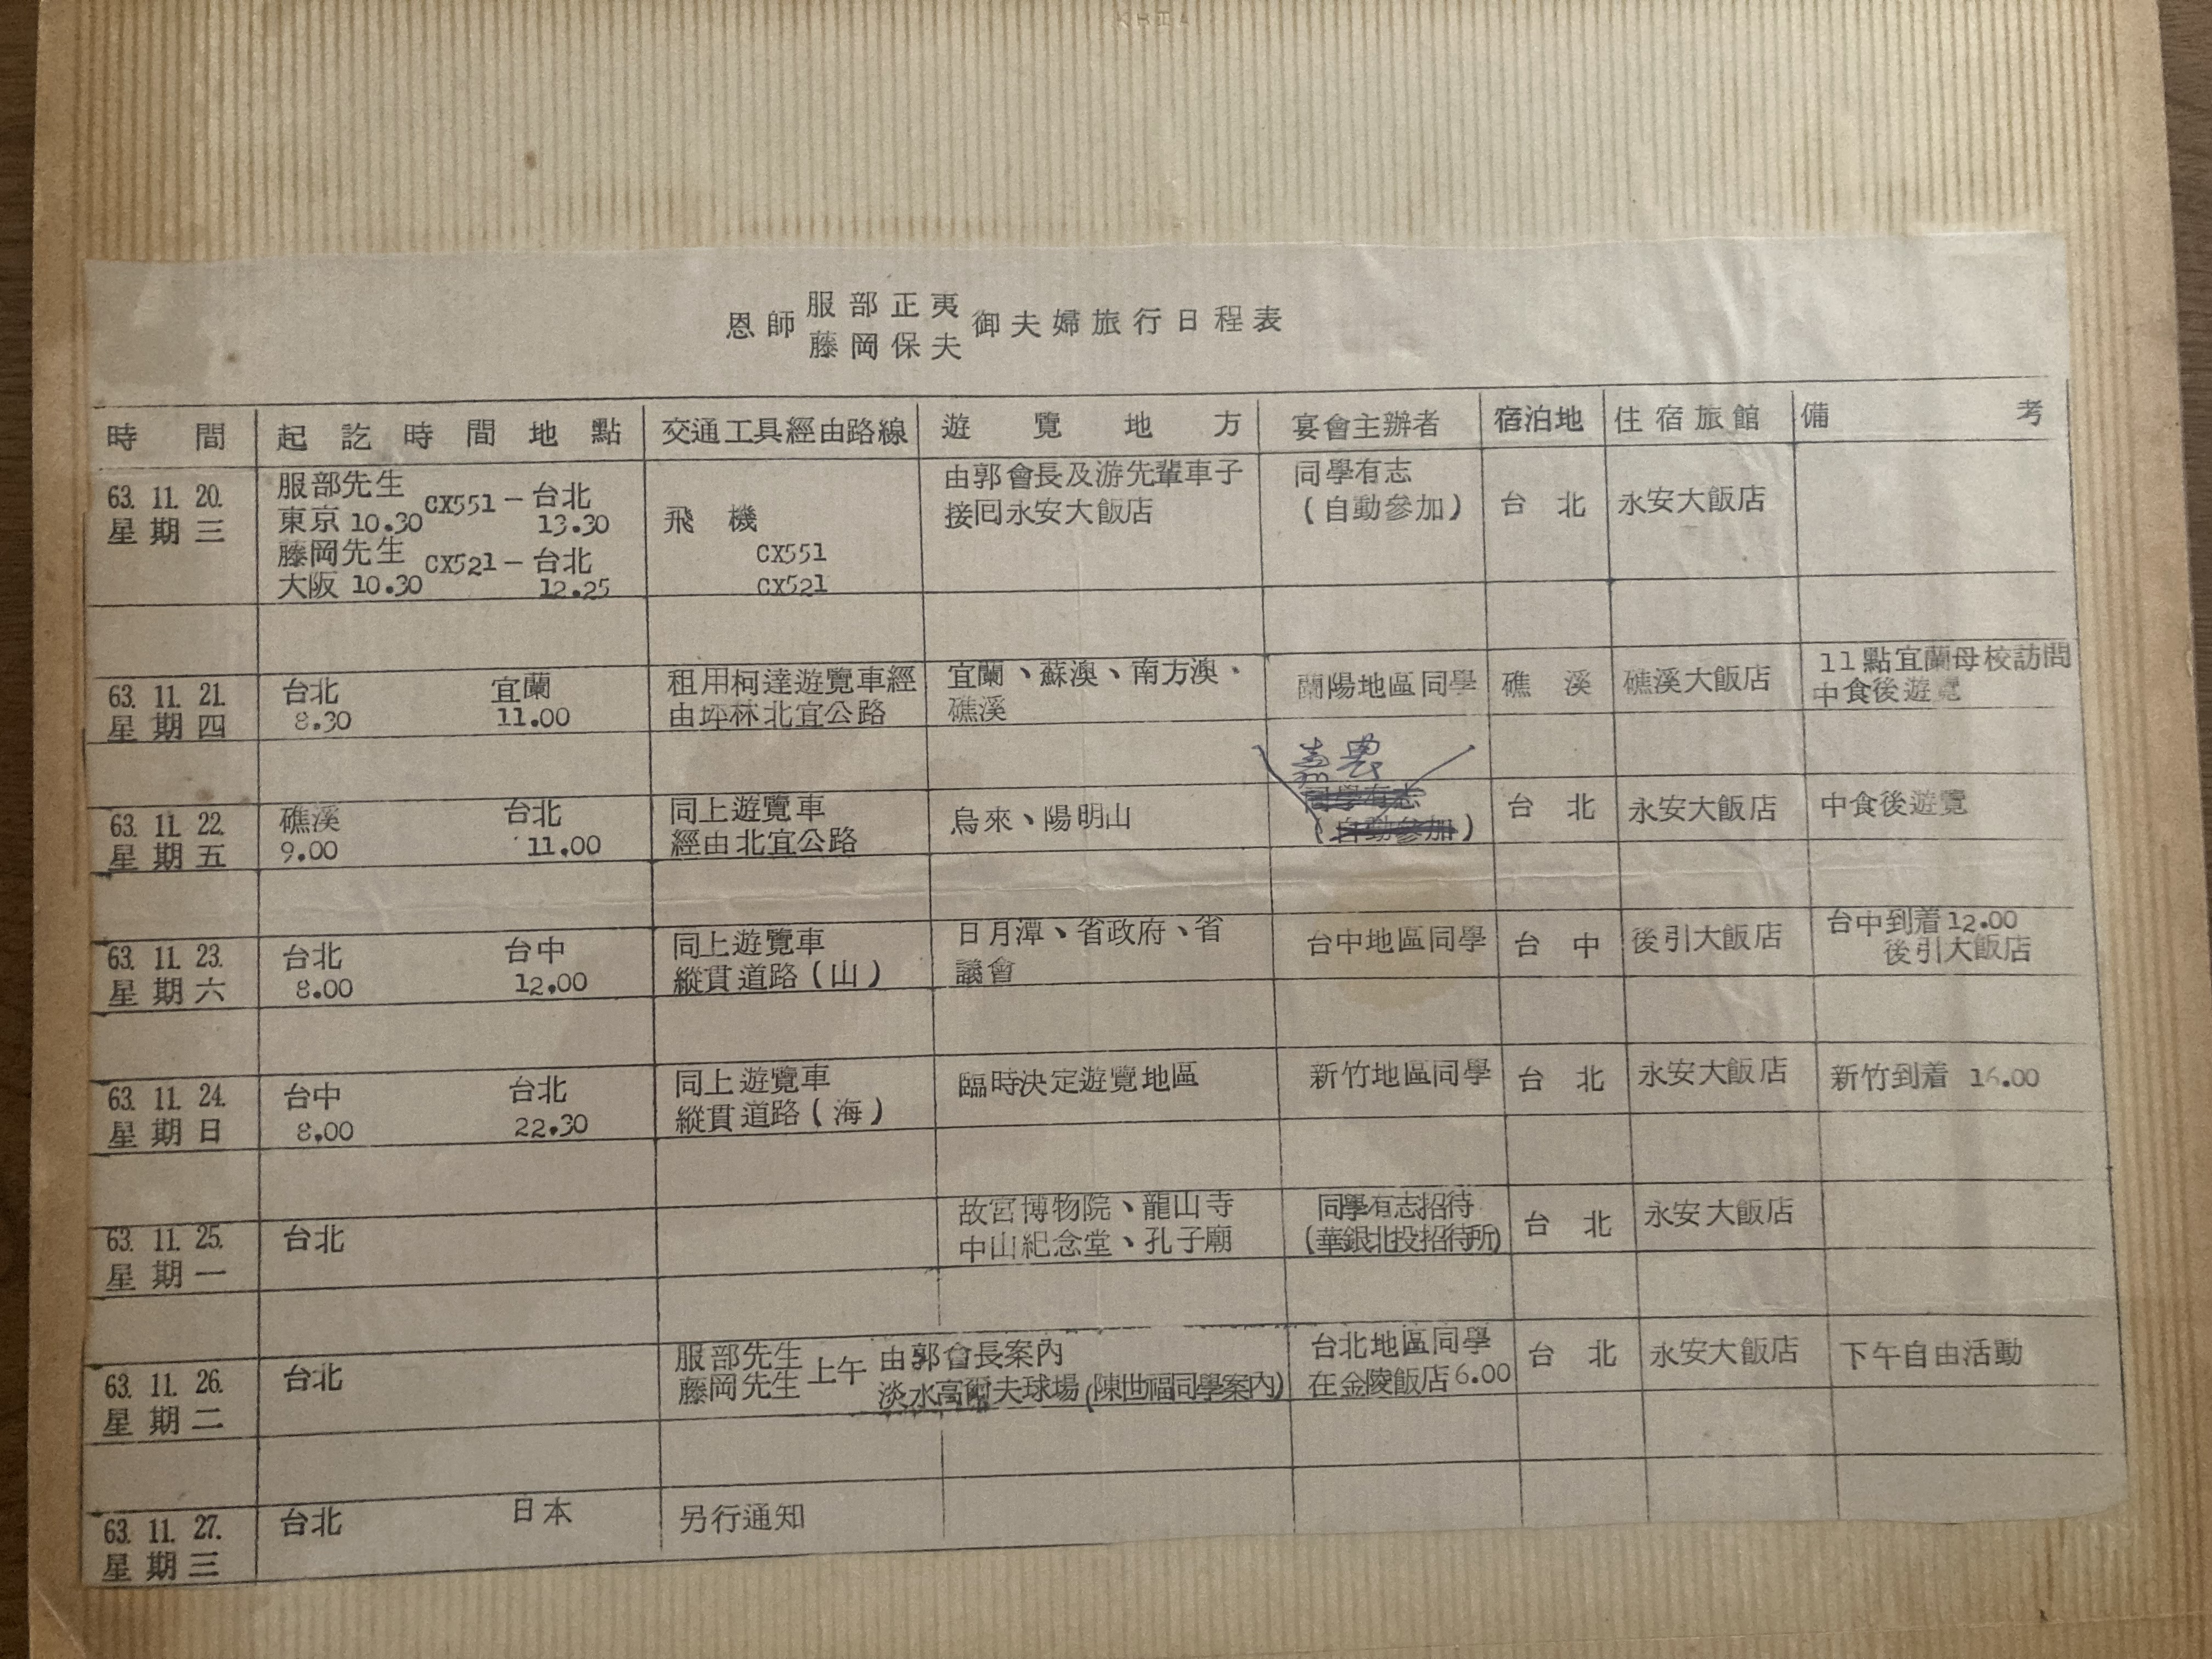 恩師 服部正夷 藤岡保夫 御夫婦旅行日程表
時間 起訖時間地點 交通工具經由路線 遊覽地方 宴會主辦者 宿泊地 住宿旅館 備考
63. 11. 20.
星期三
服部先生 CX551 - 台北
東京 10.30 13.30
藤岡先生 CX521 - 台北
大阪 10.30 12.25
飛機
CX551
CX521
由郭會長及游先輩車子
接回永安大飯店
同學有志
(自動參加)
台北
永安大飯店
63. 11. 21.
星期四
台北 宜蘭
8.30 11.00
租用柯達遊覽車經
由坪林北宜公路
宜蘭、蘇澳、南方澳、
礁溪
蘭陽地區同學
礁溪
礁溪大飯店
11點宜蘭母校訪問
中食後遊覽
63. 11. 22.
星期五
礁溪 台北
9.00 11.00
同上遊覽車
經由北宜公路
烏來、陽明山
嘉農
同學有志
(自動參加)
台北
永安大飯店
中食後遊覽
63. 11. 23.
星期六
台北 台中
8.00 12.00
同上遊覽車
縱貫道路(山)
日月潭、省政府、省
議會
台中地區同學
台中
後引大飯店
台中到着12.00
後引大飯店
63. 11. 24.
星期日
台中 台北
8.00 22.30
同上遊覽車
縱貫道路(海)
臨時決定遊覽地區
新竹地區同學
台北
永安大飯店
新竹到着 16.00
63. 11. 25.
星期一
台北
故宮博物院、龍山寺
中山紀念堂、孔子廟
同學有志招待
(華銀北投招待所)
台北
永安大飯店
63. 11. 26.
星期二
台北
服部先生 藤岡先生 上午 由郭會長案內
淡水高爾夫球場(陳世福同學案內)
台北地區同學
在金陵飯店6.00
台北
永安大飯店
下午自由活動
63. 11. 27.
星期三
台北 日本
另行通知